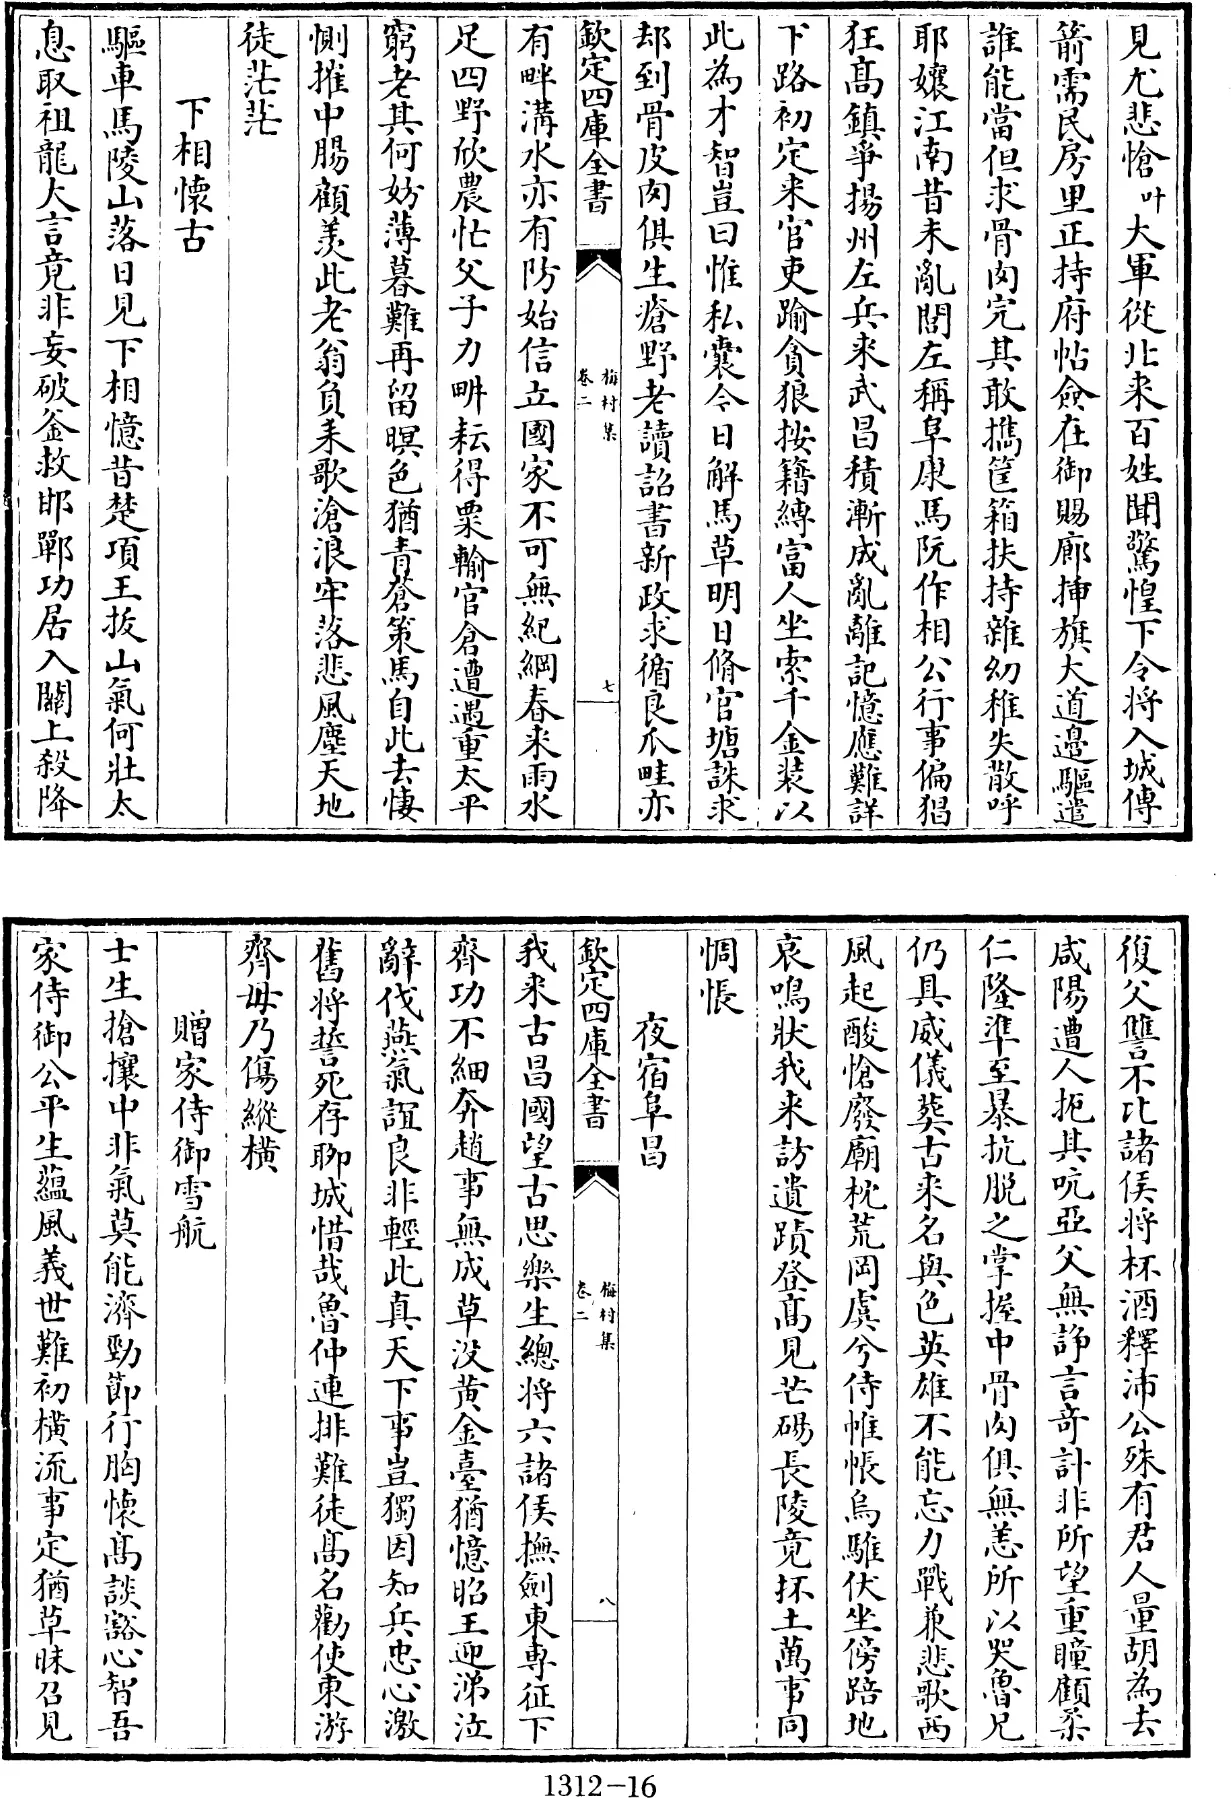 見尤悲愴叶大軍從北来百姓聞驚惶下令将入城傳
箭需民房里正持府帖僉在御賜廊揷旗大道邉驅遣
誰能當但求骨肉完其敢攜筐箱扶持雜幼稚失散呼
耶孃江南昔未亂閭左稱阜康馬阮作相公行事偏猖
狂髙鎮爭揚州左兵来武昌積漸成亂離記憶應難詳
下路初定来官吏踰貪狼按籍縛富人坐索千金装以
此為才智豈曰惟私囊今日解馬草明日脩官塘誅求
却到骨皮肉俱生瘡野老讀詔書新政求循良爪畦亦
欽定四庫全書
梅村集
卷二
七
有畔溝水亦有防始信立國家不可無紀綱春来雨水
足四野欣農忙父子力畊耘得粟輸官倉遭遇重太平
窮老其何妨薄暮難再留暝色猶青蒼策馬自此去悽
惻摧中腸顧羡此老翁負耒歌滄浪牢落悲風塵天地
徒茫茫
下相懷古
驅車馬陵山落日見下相憶昔楚項王拔山氣何壯太
息取祖龍大言竟非妄破釜救邯鄲功居入關上殺降
復父讐不比諸侯将杯酒釋沛公殊有君人量胡為去
咸陽遭人扼其吭亞父無諍言竒計非所望重瞳顧柔
仁隆準至暴抗脱之掌握中骨肉俱無恙所以哭魯兄
仍具威儀葬古来名與色英雄不能忘力戰兼悲歌西
風起酸愴廢廟枕荒岡虞兮侍帷帳烏騅伏坐傍踣地
哀鳴狀我来訪遺蹟登髙見芒碭長陵竟抔土萬事同
惆悵
夜宿阜昌
欽定四庫全書
梅村集
卷二
八
我来古昌國望古思樂生總将六諸侯撫劍東専征下
齊功不細奔趙事無成草没黄金臺猶憶昭王迎涕泣
辭伐燕氣誼良非輕此真天下事豈獨因知兵忠心激
舊将誓死存聊城惜哉魯仲連排難徒髙名勸使東游
齊毋乃傷縱横
贈家侍御雪航
士生搶攘中非氣莫能濟勁節行胸懷髙談豁心智吾
家侍御公平生藴風義世難初横流事定猶草昧召見
1312-16